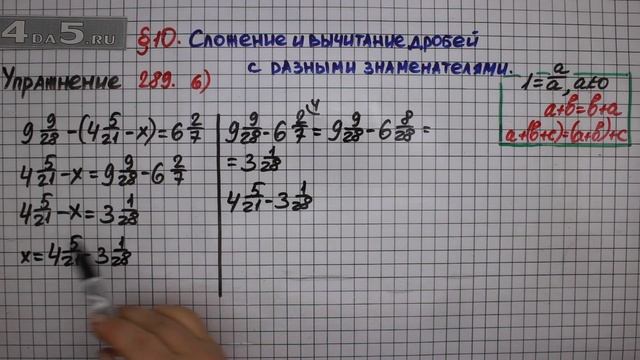 4DA5.RU
§10. Сложение и вычитание дробей
с разными знаменателями.
Упражнение 289. б)
1 = a/a, a≠0
a+b=b+a
a+(b+c)=(a+b)+c
9 9/28 - (4 5/21 - x) = 6 2/7
4 5/21 - x = 9 9/28 - 6 2/7
4 5/21 - x = 3 1/28
x = 4 5/21 - 3 1/28
9 9/28 - 6 2/7 \4 = 9 9/28 - 6 8/28 =
= 3 1/28
4 5/21 - 3 1/28